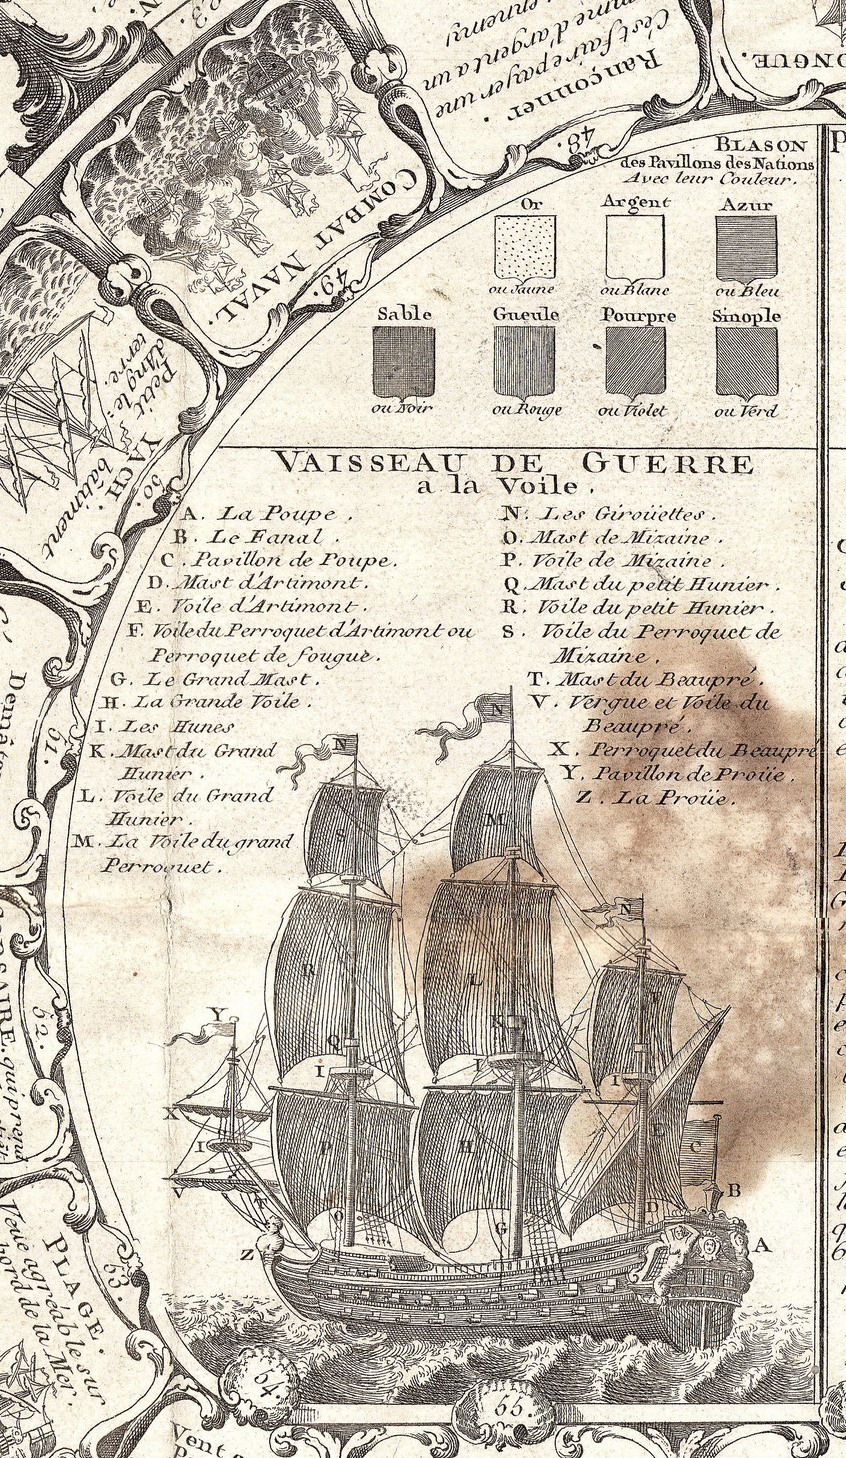 Rançonner.
C'est faire payer une
d'argent a un
ennemy
48.
COMBAT NAVAL.
49.
Petit YACH.
bâtiment
d'Angle:
terre.
50.
51.
52.
PLAGE.
Veüe agréable sur
bord de la Mer.
53.
54.
55.
Vent
BLASON
des Pavillons des Nations
Avec leur Couleur.
Or
Argent
Azur
ou Jaune
ou Blanc
ou Bleu
Sable
Gueule
Pourpre
Sinople
ou Noir
ou Rouge
ou Violet
ou Verd
VAISSEAU DE GUERRE
a la Voile.
A. La Poupe.
B. Le Fanal.
C. Pavillon de Poupe.
D. Mast d'Artimont.
E. Voile d'Artimont.
F. Voile du Perroquet d'Artimont ou
Perroquet de fougue.
G. Le Grand Mast.
H. La Grande Voile.
I. Les Hunes
K. Mast du Grand
Hunier.
L. Voile du Grand
Hunier.
M. La Voile du grand
Perroquet.
N. Les Giroüettes.
O. Mast de Mizaine.
P. Voile de Mizaine.
Q. Mast du petit Hunier.
R. Voile du petit Hunier.
S. Voile du Perroquet de
Mizaine.
T. Mast du Beaupré.
V. Vergue et Voile du
Beaupré.
X. Perroquet du Beaupré
Y. Pavillon de Proüe.
Z. La Proüe.
N
N
S
M
N
R
L
Y
Q
K
I
I
X
I
P
H
E
C
V
B
O
G
D
Z
A